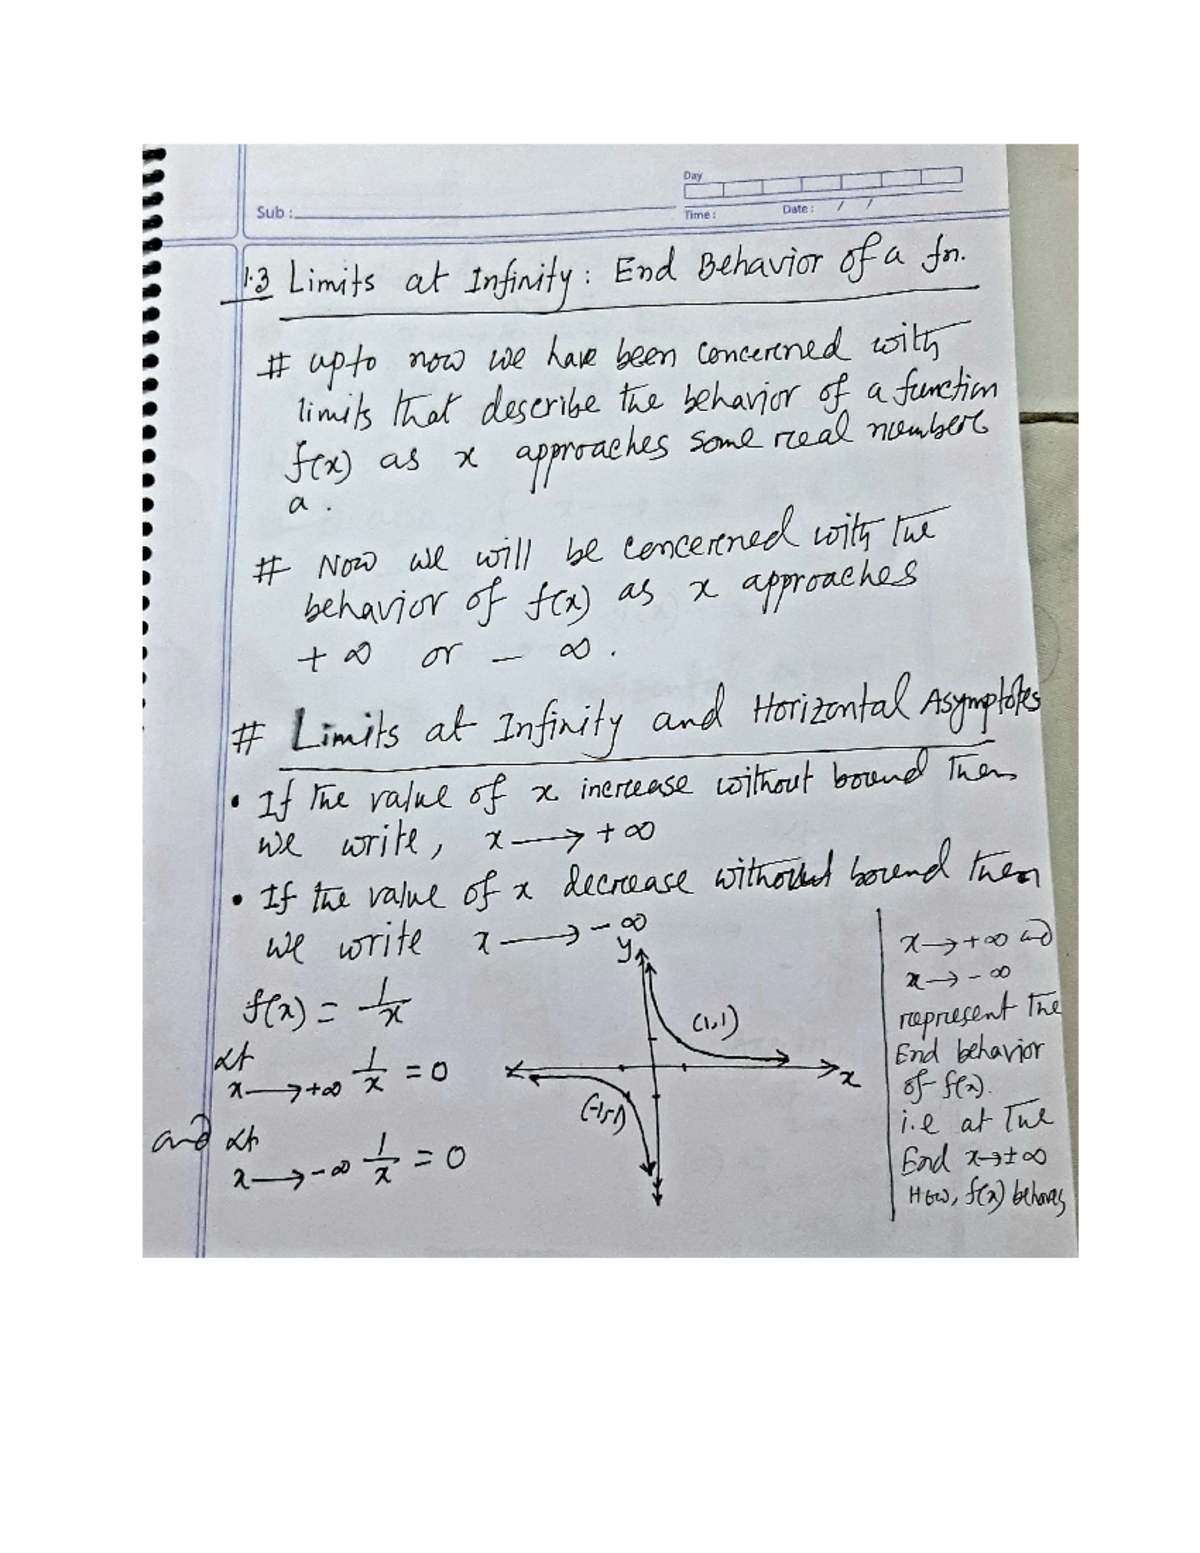 Day
Sub :
Time :
Date : / /
1.3 Limits at Infinity : End Behavior of a fn.
# upto now we have been concerned with
limits that describe the behavior of a function
f(x) as x approaches some real number
a .
# Now we will be concerned with the
behavior of f(x) as x approaches
+ ∞ or - ∞ .
# Limits at Infinity and Horizontal Asymptotes
• If the value of x increase without bound then
we write, x ⟶ + ∞
• If the value of x decrease without bound then
we write x ⟶ - ∞
f(x) = 1/x
Lt x ⟶ +∞ 1/x = 0
and Lt x ⟶ -∞ 1/x = 0
y
(1,1)
x
(-1,-1)
x → +∞ and
x → - ∞
represent the
End behavior
of f(x).
i.e at the
End x→±∞
How, f(x) behaves